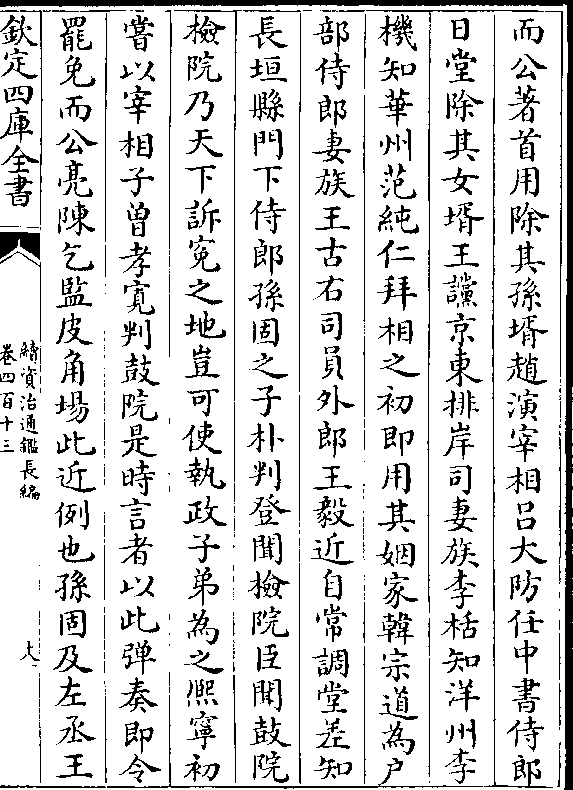 而公著首用除其孫壻趙演宰相吕大防任中書侍郎
日堂除其女壻王讜京東排岸司妻族李栝知洋州李
機知華州范純仁拜相之初即用其姻家韓宗道為户
部侍郎妻族王古右司員外郎王毅近自常調堂差知
長垣縣門下侍郎孫固之子朴判登聞檢院臣聞鼓院
檢院乃天下訴寃之地豈可使執政子弟為之熈寧初
嘗以宰相子曾孝寛判鼓院是時言者以此弹奏即令
罷免而公亮陳乞監皮角場此近例也孫固及左丞王
欽定四庫全書
續資治通鑑長編
卷四百十三